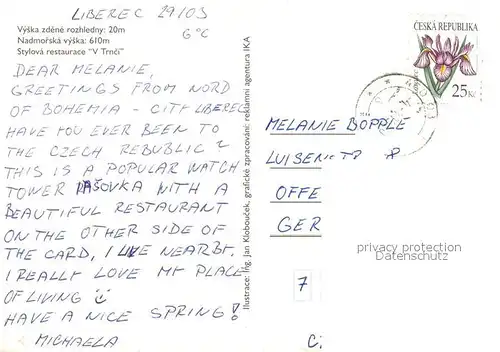 LIBEREC 29/03
6°C
Výška zděné rozhledny: 20m
Nadmořská výška: 610m
Stylová restaurace "V Trnčí"
DEAR MELANIE,
GREETINGS FROM NORD
OF BOHEMIA - CITY LIBEREC
HAVE YOU EVER BEEN TO
THE CZECH REPUBLIC?
THIS IS A POPULAR WATCH
TOWER JAŠOVKA WITH A
BEAUTIFUL RESTAURANT
ON THE OTHER SIDE OF
THE CARD, I LIVE NEARBY.
I REALLY LOVE MY PLACE
OF LIVING
HAVE A NICE SPRING!
MICHAELA
Ilustrace: Ing. Jan Klobouček, grafické zpracování: reklamní agentura IKA
ČESKÁ REPUBLIKA
25 Kč
MELANIE BOPPLE
LUISENST 8
OFFE
GER
privacy protection
Datenschutz
7